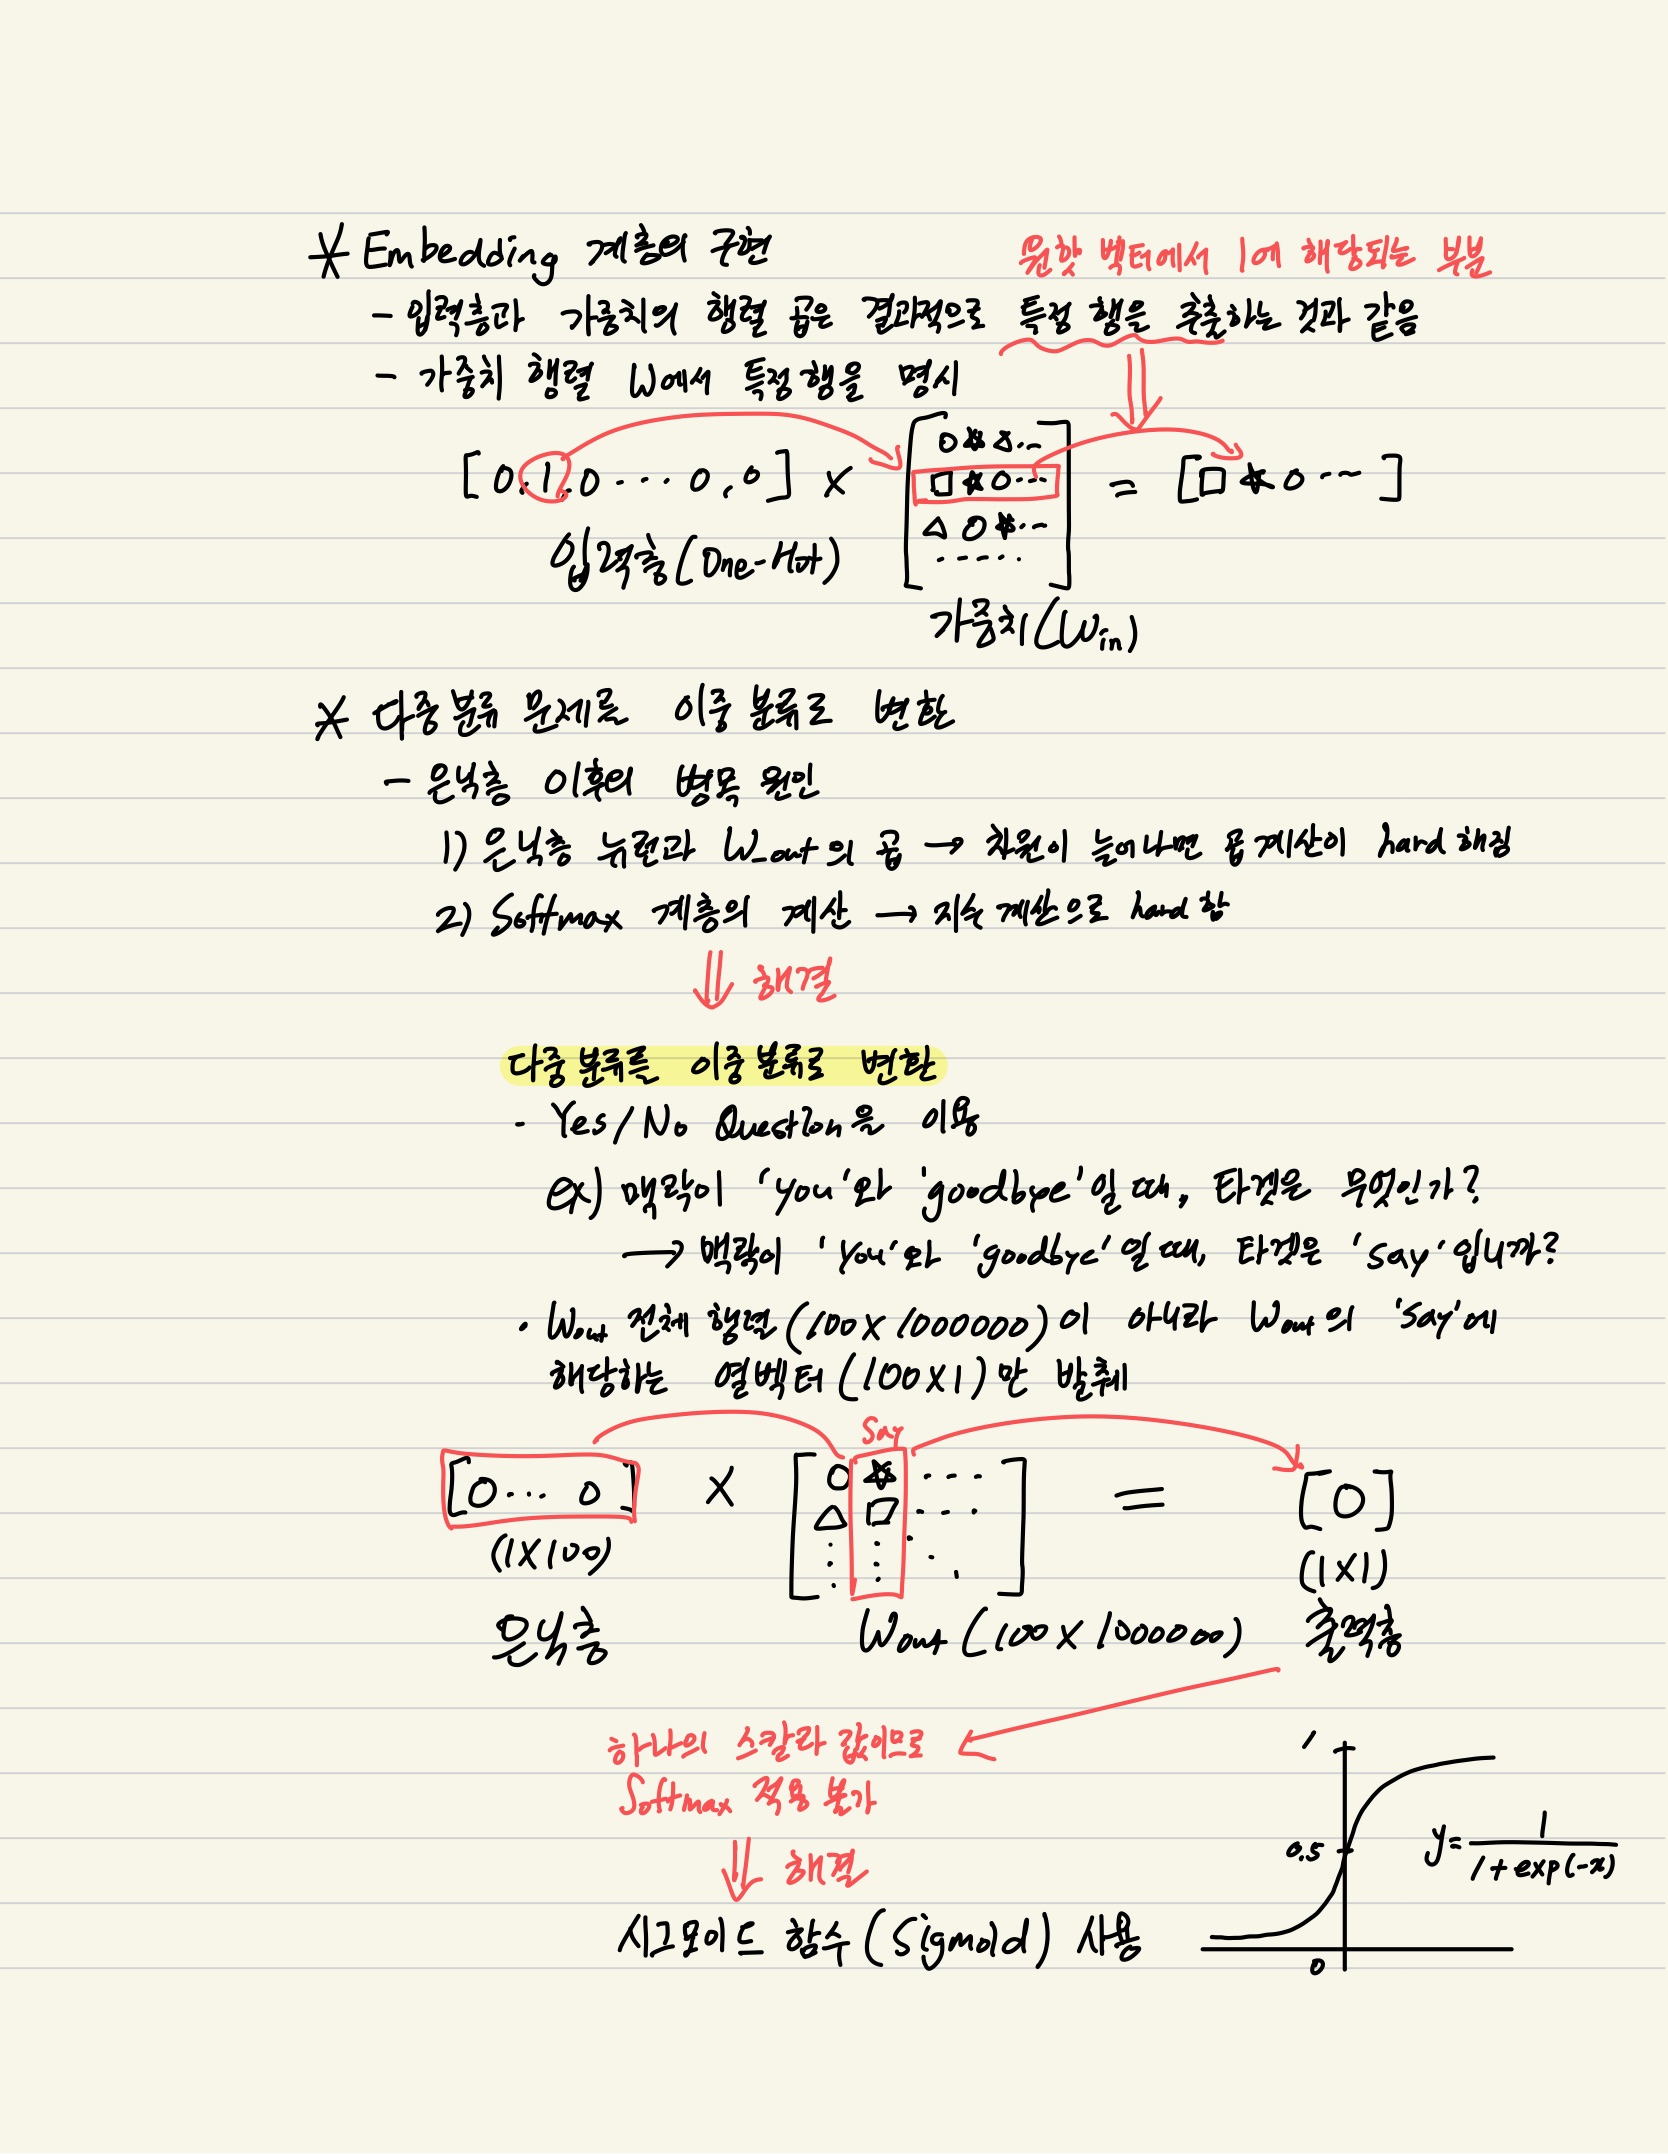 * Embedding 계층의 구현
원핫 벡터에서 1에 해당되는 부분
- 입력층과 가중치의 행렬 곱은 결과적으로 특정 행을 추출하는 것과 같음
- 가중치 행렬 W에서 특정행을 명시
[0.1.0···0,0] × [○☆△··· □☆○··· △○☆··· ·····] = [□☆○···]
입력층(One-Hot)
가중치(Win)
* 다중분류 문제를 이중분류로 변환
- 은닉층 이후의 병목 원인
1) 은닉층 뉴런과 W_out의 곱 → 차원이 늘어나면 곱계산이 hard해짐
2) Softmax 계층의 계산 → 지수 계산으로 hard함
⇓ 해결
다중분류를 이중분류로 변환
- Yes/No Question을 이용
ex) 맥락이 'you'와 'goodbye'일 때, 타겟은 무엇인가?
→ 맥락이 'you'와 'goodbye'일 때, 타겟은 'say'입니까?
· Wout 전체 행렬(100X1000000)이 아니라 Wout의 'say'에
해당하는 열벡터(100X1)만 발췌
Say
[0··· 0] X [○☆···· △□····] = [0]
(1X100)
(1X1)
은닉층
Wout (100X1000000)
출력층
하나의 스칼라 값이므로
Softmax 적용 불가
⇓ 해결
시그모이드 함수(Sigmoid) 사용
1
0.5
0
y= 1/1+exp(-x)